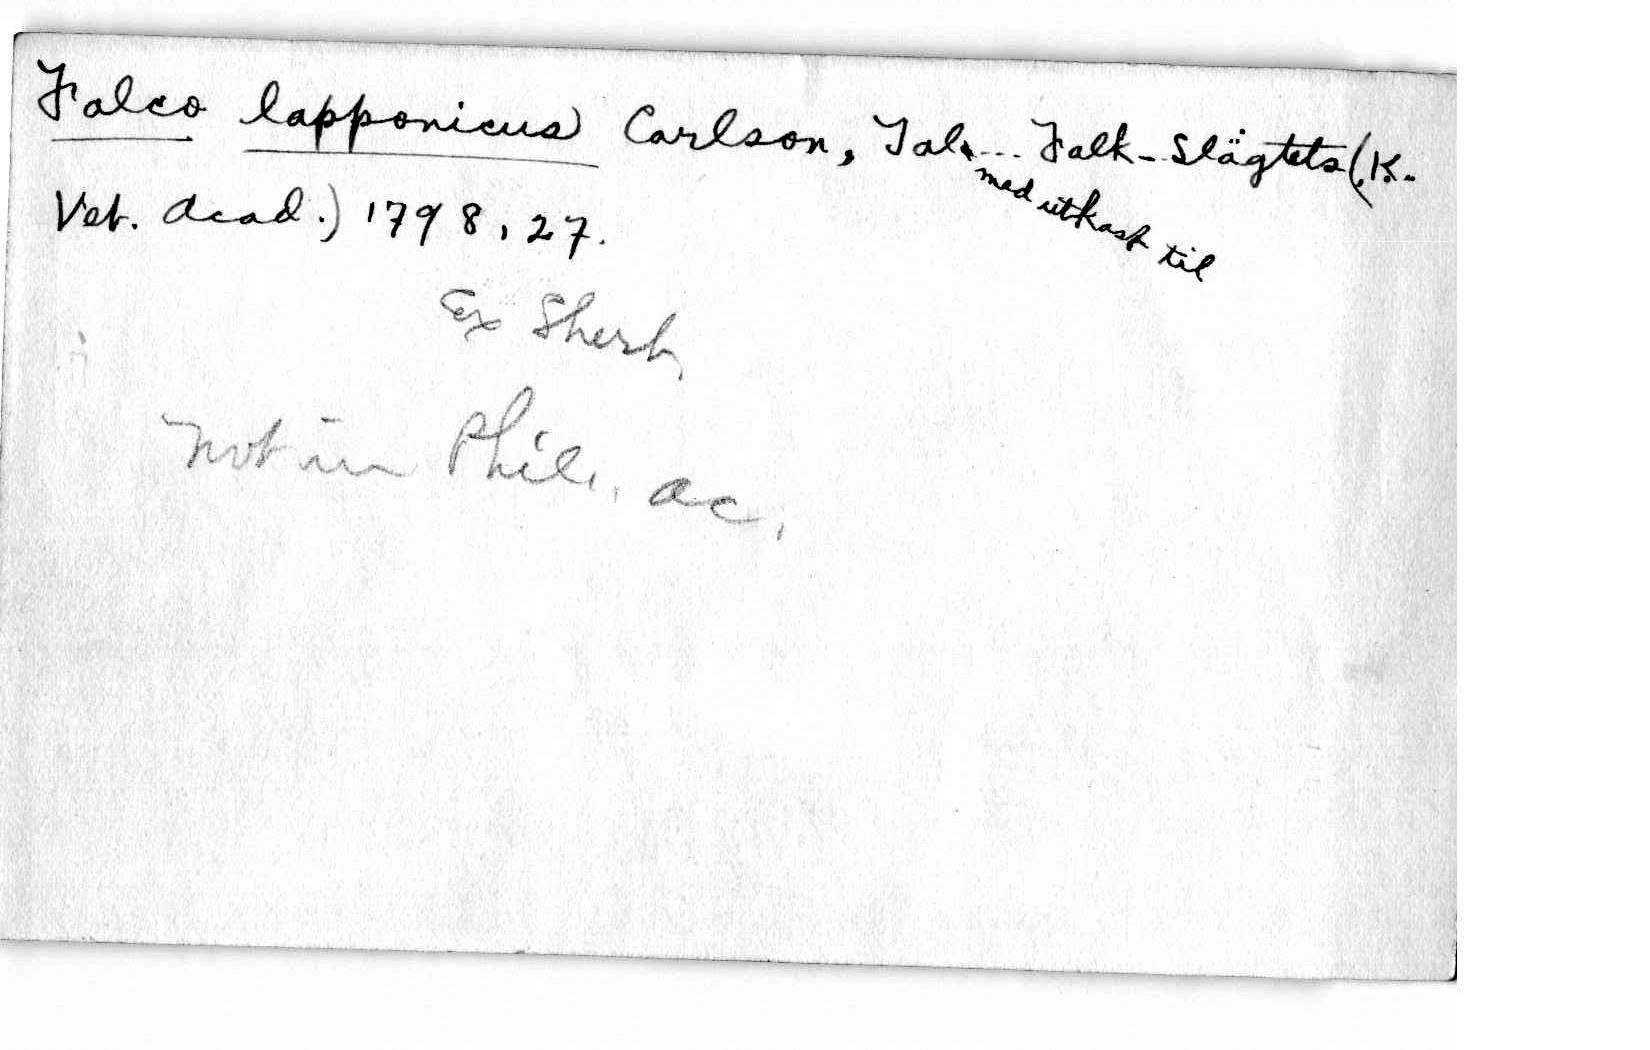 Falco lapponicus Carlson, Tal. ... Falk-Slägtets (K.
med utkast til
Vet. Acad.) 1798, 27.
Ex Sherb,
Not in Phil. ac.